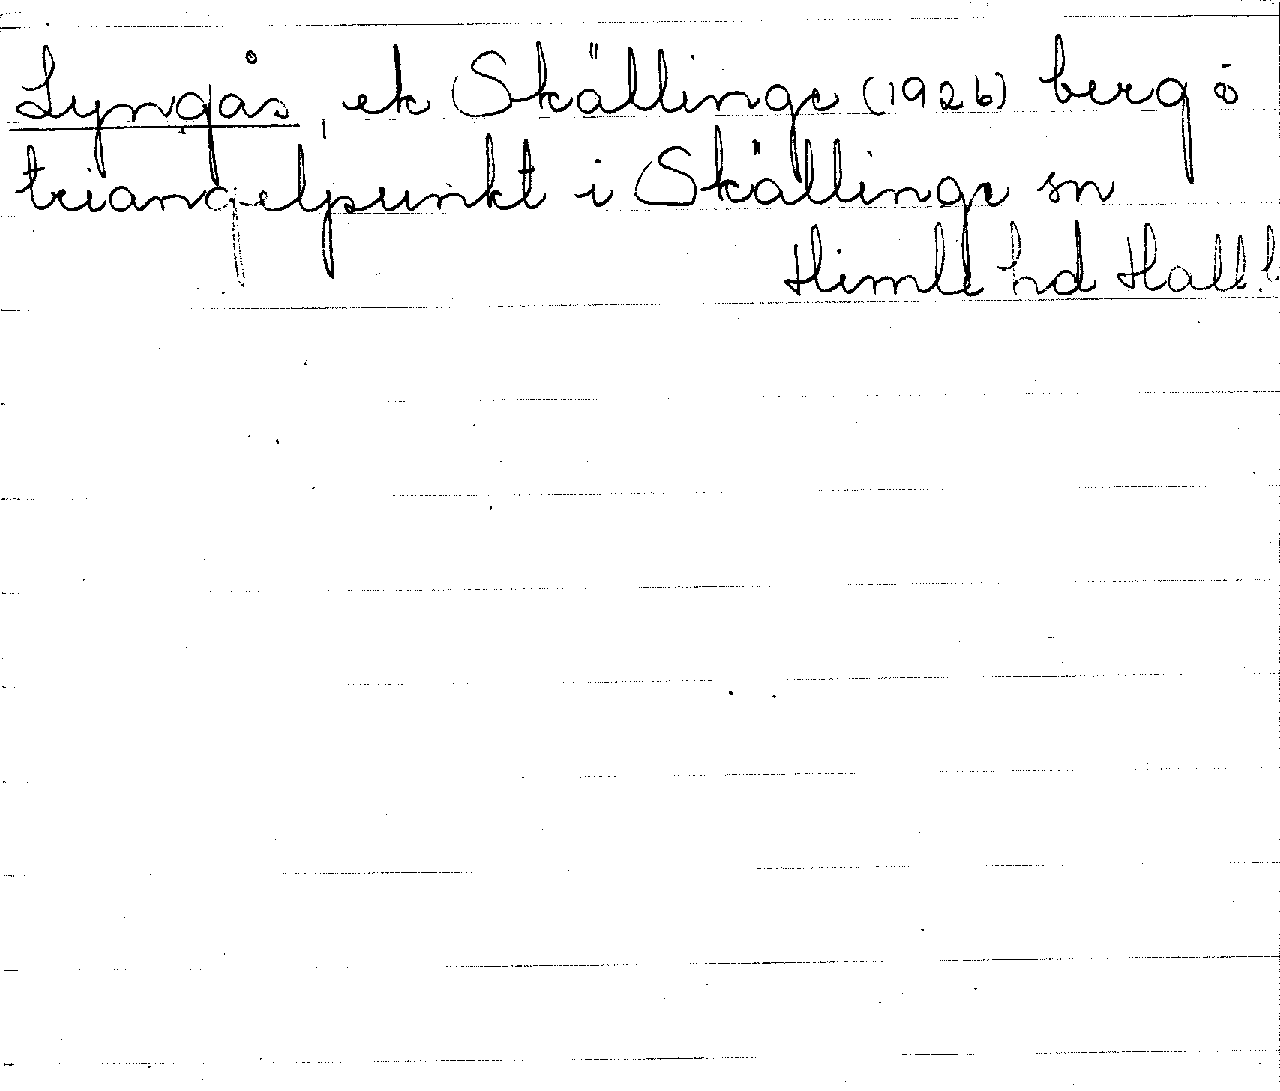 Lyngås, ek Skällinge (1926) berg ö
triangelpunkt i Skällinge sn
Himle hd Hall.